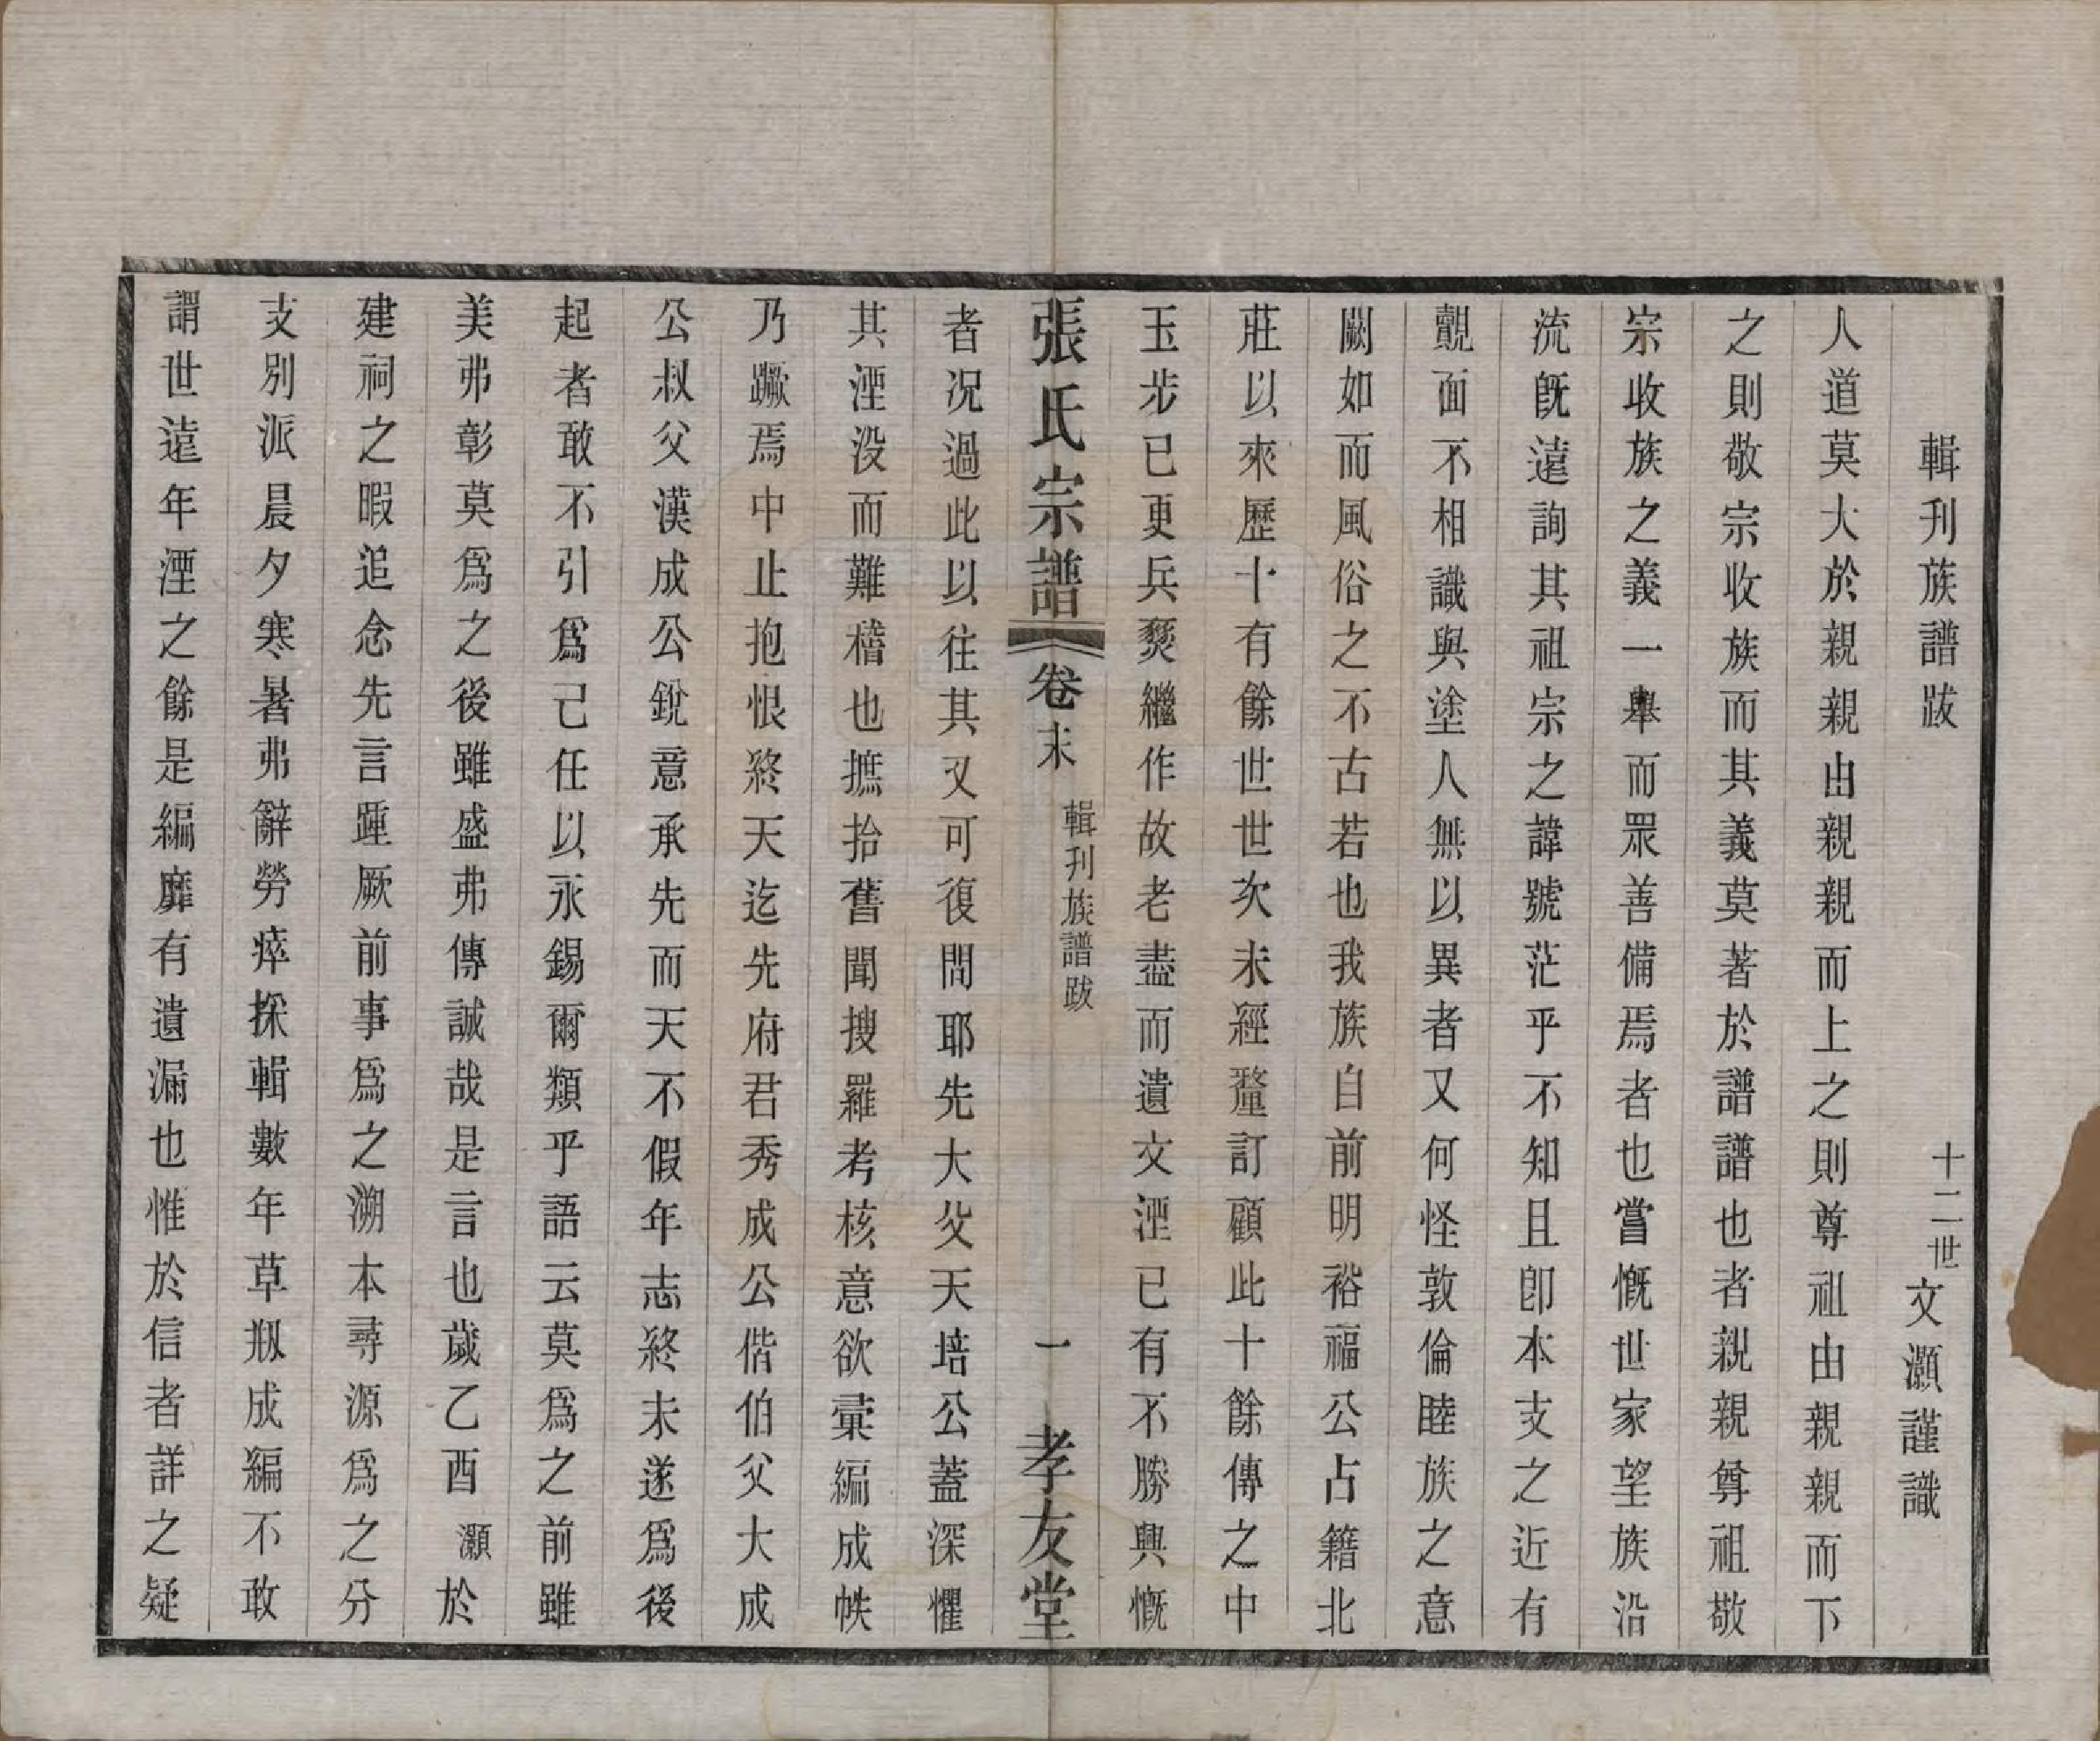 輯刊族譜跋　十二世文灝謹識
人道莫大於親親由親親而上之則尊祖由親親而下
之則敬宗收族而其義莫著於譜譜也者親親尊祖敬
宗收族之義一舉而眾善備焉者也嘗慨世家望族沿
流旣遠詢其祖宗之諱號茫乎不知且卽本支之近有
覿面不相識與塗人無以異者又何怪敦倫睦族之意
闕如而風俗之不古若也我族自前明裕福公占籍北
莊以來歷十有餘世世次未經釐訂顧此十餘傳之中
玉步已更兵燹繼作故老盡而遺文湮已有不勝興慨
張氏宗譜 卷末 輯刊族譜跋 一 孝友堂
者况過此以往其又可復問耶先大父天培公蓋深懼
其湮没而難稽也摭拾舊聞搜羅考核意欲彙編成帙
乃蹶焉中止抱恨終天迄先府君秀成公偕伯父大成
公叔父漢成公銳意承先而天不假年志終未遂爲後
起者敢不引爲己任以永錫爾類乎語云莫爲之前雖
美弗彰莫爲之後雖盛弗傳誠哉是言也歲乙酉灝於
建祠之暇追念先言踵厥前事爲之溯本尋源爲之分
支別派晨夕寒暑弗辭勞瘁採輯數年草刱成編不敢
謂世遠年湮之餘是編靡有遺漏也惟於信者詳之疑